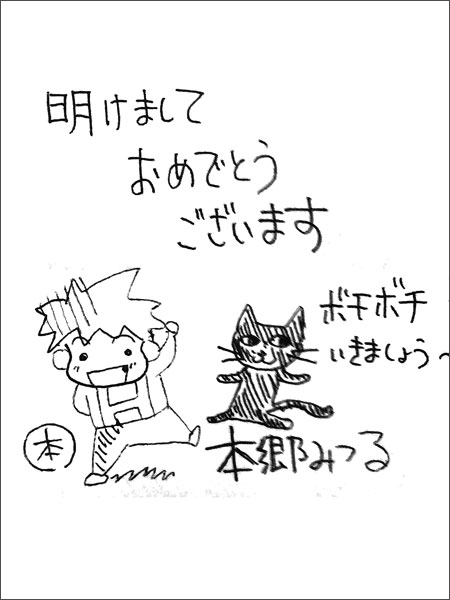 明けまして
おめでとう
ございます
ボチボチ
いきましょう～
本
本郷みつる